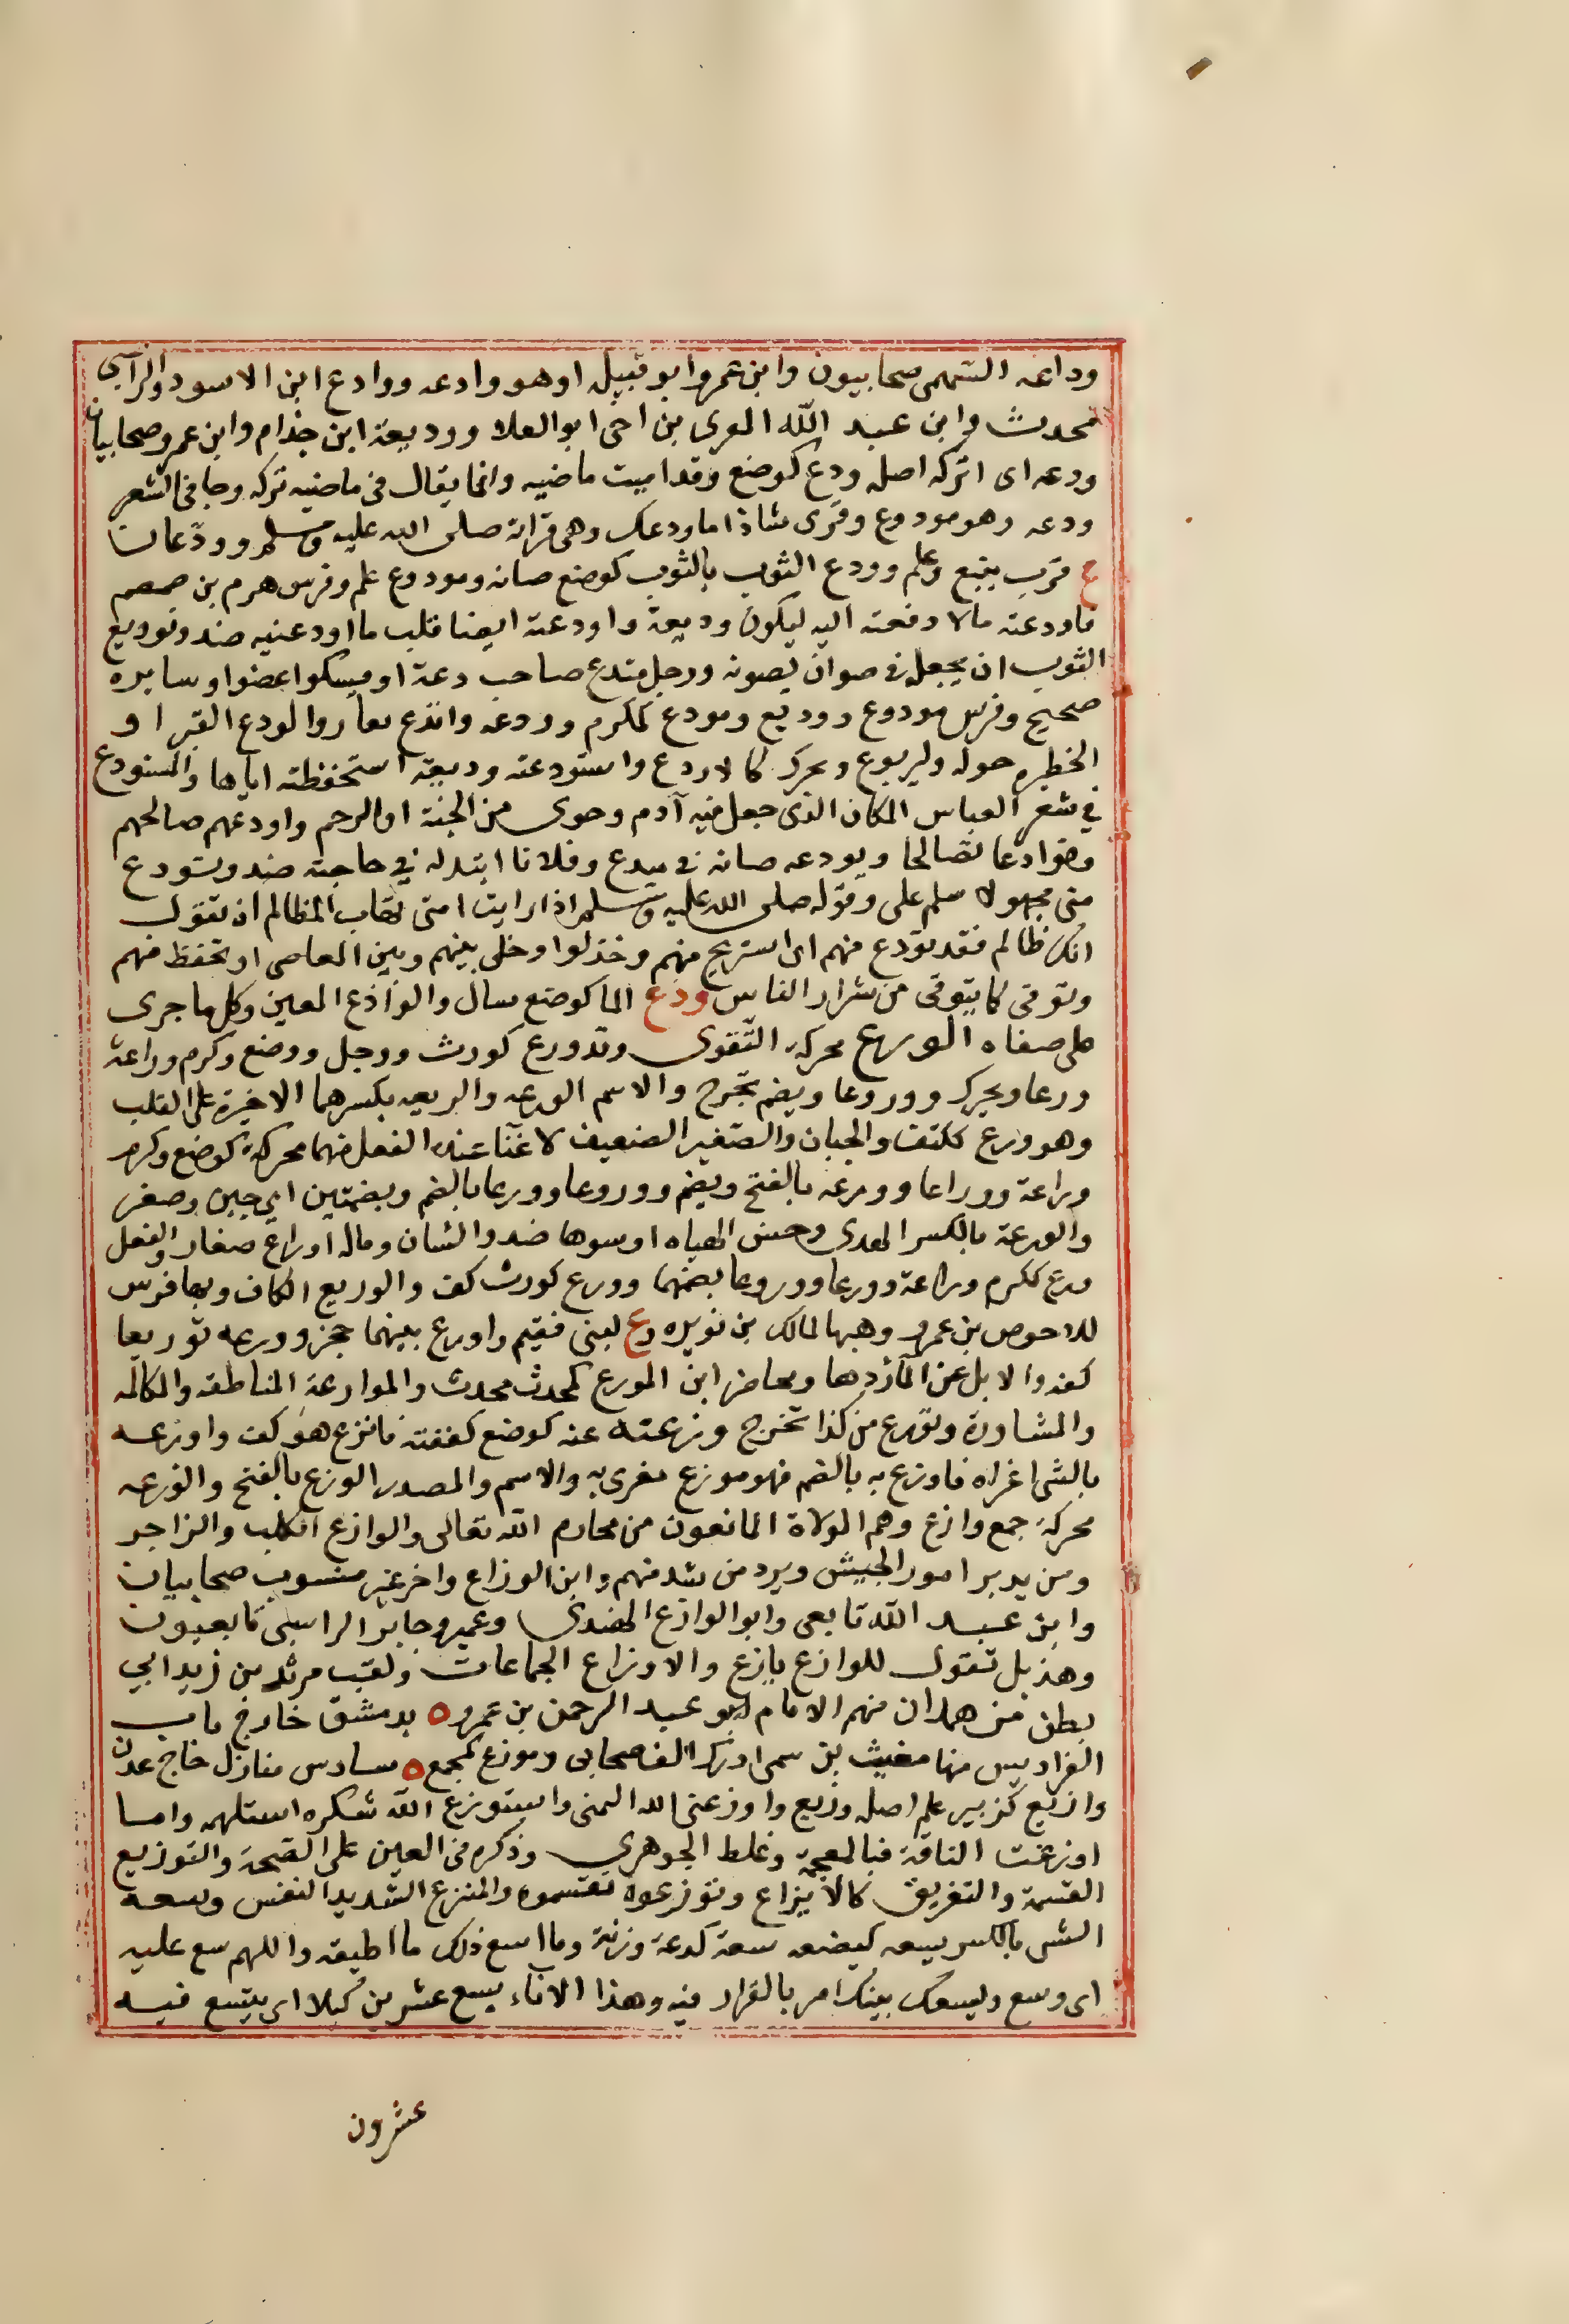 وداعه السهمى صحابيون وابن عمرو ابو قبيله او هو وادعه ووادع ابن الاسود الراسبى
محدث وابن عبد الله المعرى بن اخى ابو العلا ووديعة ابن جذام وابن عمرو صحابيان
ودعه اى اتركه اصله ودع كوضع وقد اميت ماضيه وانما يقال فى ماضيه تركه وجا فى الشعر
ودعه وهو مودوع وقرى شاذا ما ودعك وهى قراة صلى الله عليه وسلم وودعان
ع قرب ينبع وعلم وودع الثوب بالثوب كوضع صانه ومودوع علم وفرس هرم بن ضمضم
فاودعته مالا دفعته اليه ليكون وديعة واودعته ايضا قلب ما اودعنيه ضد وتوديع
الثوب ان يجعل فى صوان يصونه ورجل متدع صاحب دعة او يسكوا عضوا وسايره
صحيح وفرس مودوع ووديع ومودع كمكرم وودعه واتدع بعار والودع القبر او
الخطيره حوله وليربوع ويحرك كالاودع واستودعته وديعة استحفظته اياها والمستودع
فى شعر العباس المكان الذى جعل فيه آدم وحوى من الجنة او الرحم واودعهم صالحهم
وتوادعا تصالحا وتودعه صانه فى ميدع وفلانا ابتدله فى حاجته ضد وتودع
منى مجهولا سلم على وقوله صلى الله عليه وسلم اذا رايت امتى تهاب المظالم ان تقول
انك ظالم فقد تودع منهم اى استريح منهم وخذلوا وخلى بينهم وبين المعاصى او تحفظ منهم
وتوقى كما يتوقى من شرار الناس وذع الما كوضع سال والواذع المعين وكل ما جرى
على صفاه الورع محركة التقوى وقد ورع كورث ووجل ووضع وكرم وراعة
وورعا ويحرك ووروعا ويضم تحرج والاسم الورعه والريعه بكسرهما الاخيرة على القلب
وهو ورع ككتف والجبان والصغير الضعيف لا غنآ عنده الفعل منهما محركة كوضع وكرم
وراعة ووراعا وورعه بالفتح ويضم ووروعا وورعا بالضم وبضمتين اى جبن وصغر
والورعة بالكسر الهدى وحسن الهياه او سوها ضد والشان وماله اوراع صغار والفعل
ورع ككرم وراعة وورعا ووروعا بضمهما وورع كورث كف والوريع الكاف وبها فرس
للاحوص بن عمرو وهبها لمالك بن نويره وع لبنى فقيم واورع بينهما حجز وورعه توريعا
كفه والابل عن المآ ردها ومحاضر ابن المورع كمحدث محدث والموارعة المناطقه والمكالمه
والمشاورة وتورع من كذا تحرج وزعته عنه كوضع كففته فاتزع هو كف واوزعه
بالشى اغراه فاوزع به بالضم فهو موزع مغرى به والاسم والمصدر الوزع بالفتح والوزعه
محركة جمع وازع وهم الولاة المانعون من محارم الله تعالى والوازع الكلب والزاجر
ومن يدبر امور الجيش ويرد من شد منهم وابن الوزاع واخر غير منسوب صحابيان
وابن عبد الله تابعى وابو الوازع الهندى وعمير وجابر الراسبى تابعيون
وهذيل تقول للوازع يازع والاوزاع الجماعات ولقب مرثد من زيد ابى
بطن من همدان منهم الامام ابو عبد الرحمن بن عمرو ه بدمشق خارج باب
الفراديس منها مغيث بن سمى ادرك الف صحابى وموزع كمجمع ه سادس منازل حاج عدن
وازيع كزبير علم اصله وزيع واوزعنى الله الهمنى واستوزع الله شكره استلهمه واما
اوزعت الناقة فبالمعجمة وغلط الجوهرى وذكره فى العين على الصحة والتوزيع
القسمة والتفريق كالايزاع وتوزعوه تقسموه والمتزع الشديد النفس وسعه
الشى بالكسر يسعه كيضعه سعة كدعة وزنة وما اسع ذلك ما اطيقه واللهم سع عليه
اى وسع وليسعك بيتك امر بالقرار فيه وهذا الاناء يسع عشرين كيلا اى يتسع فيه
عشرون